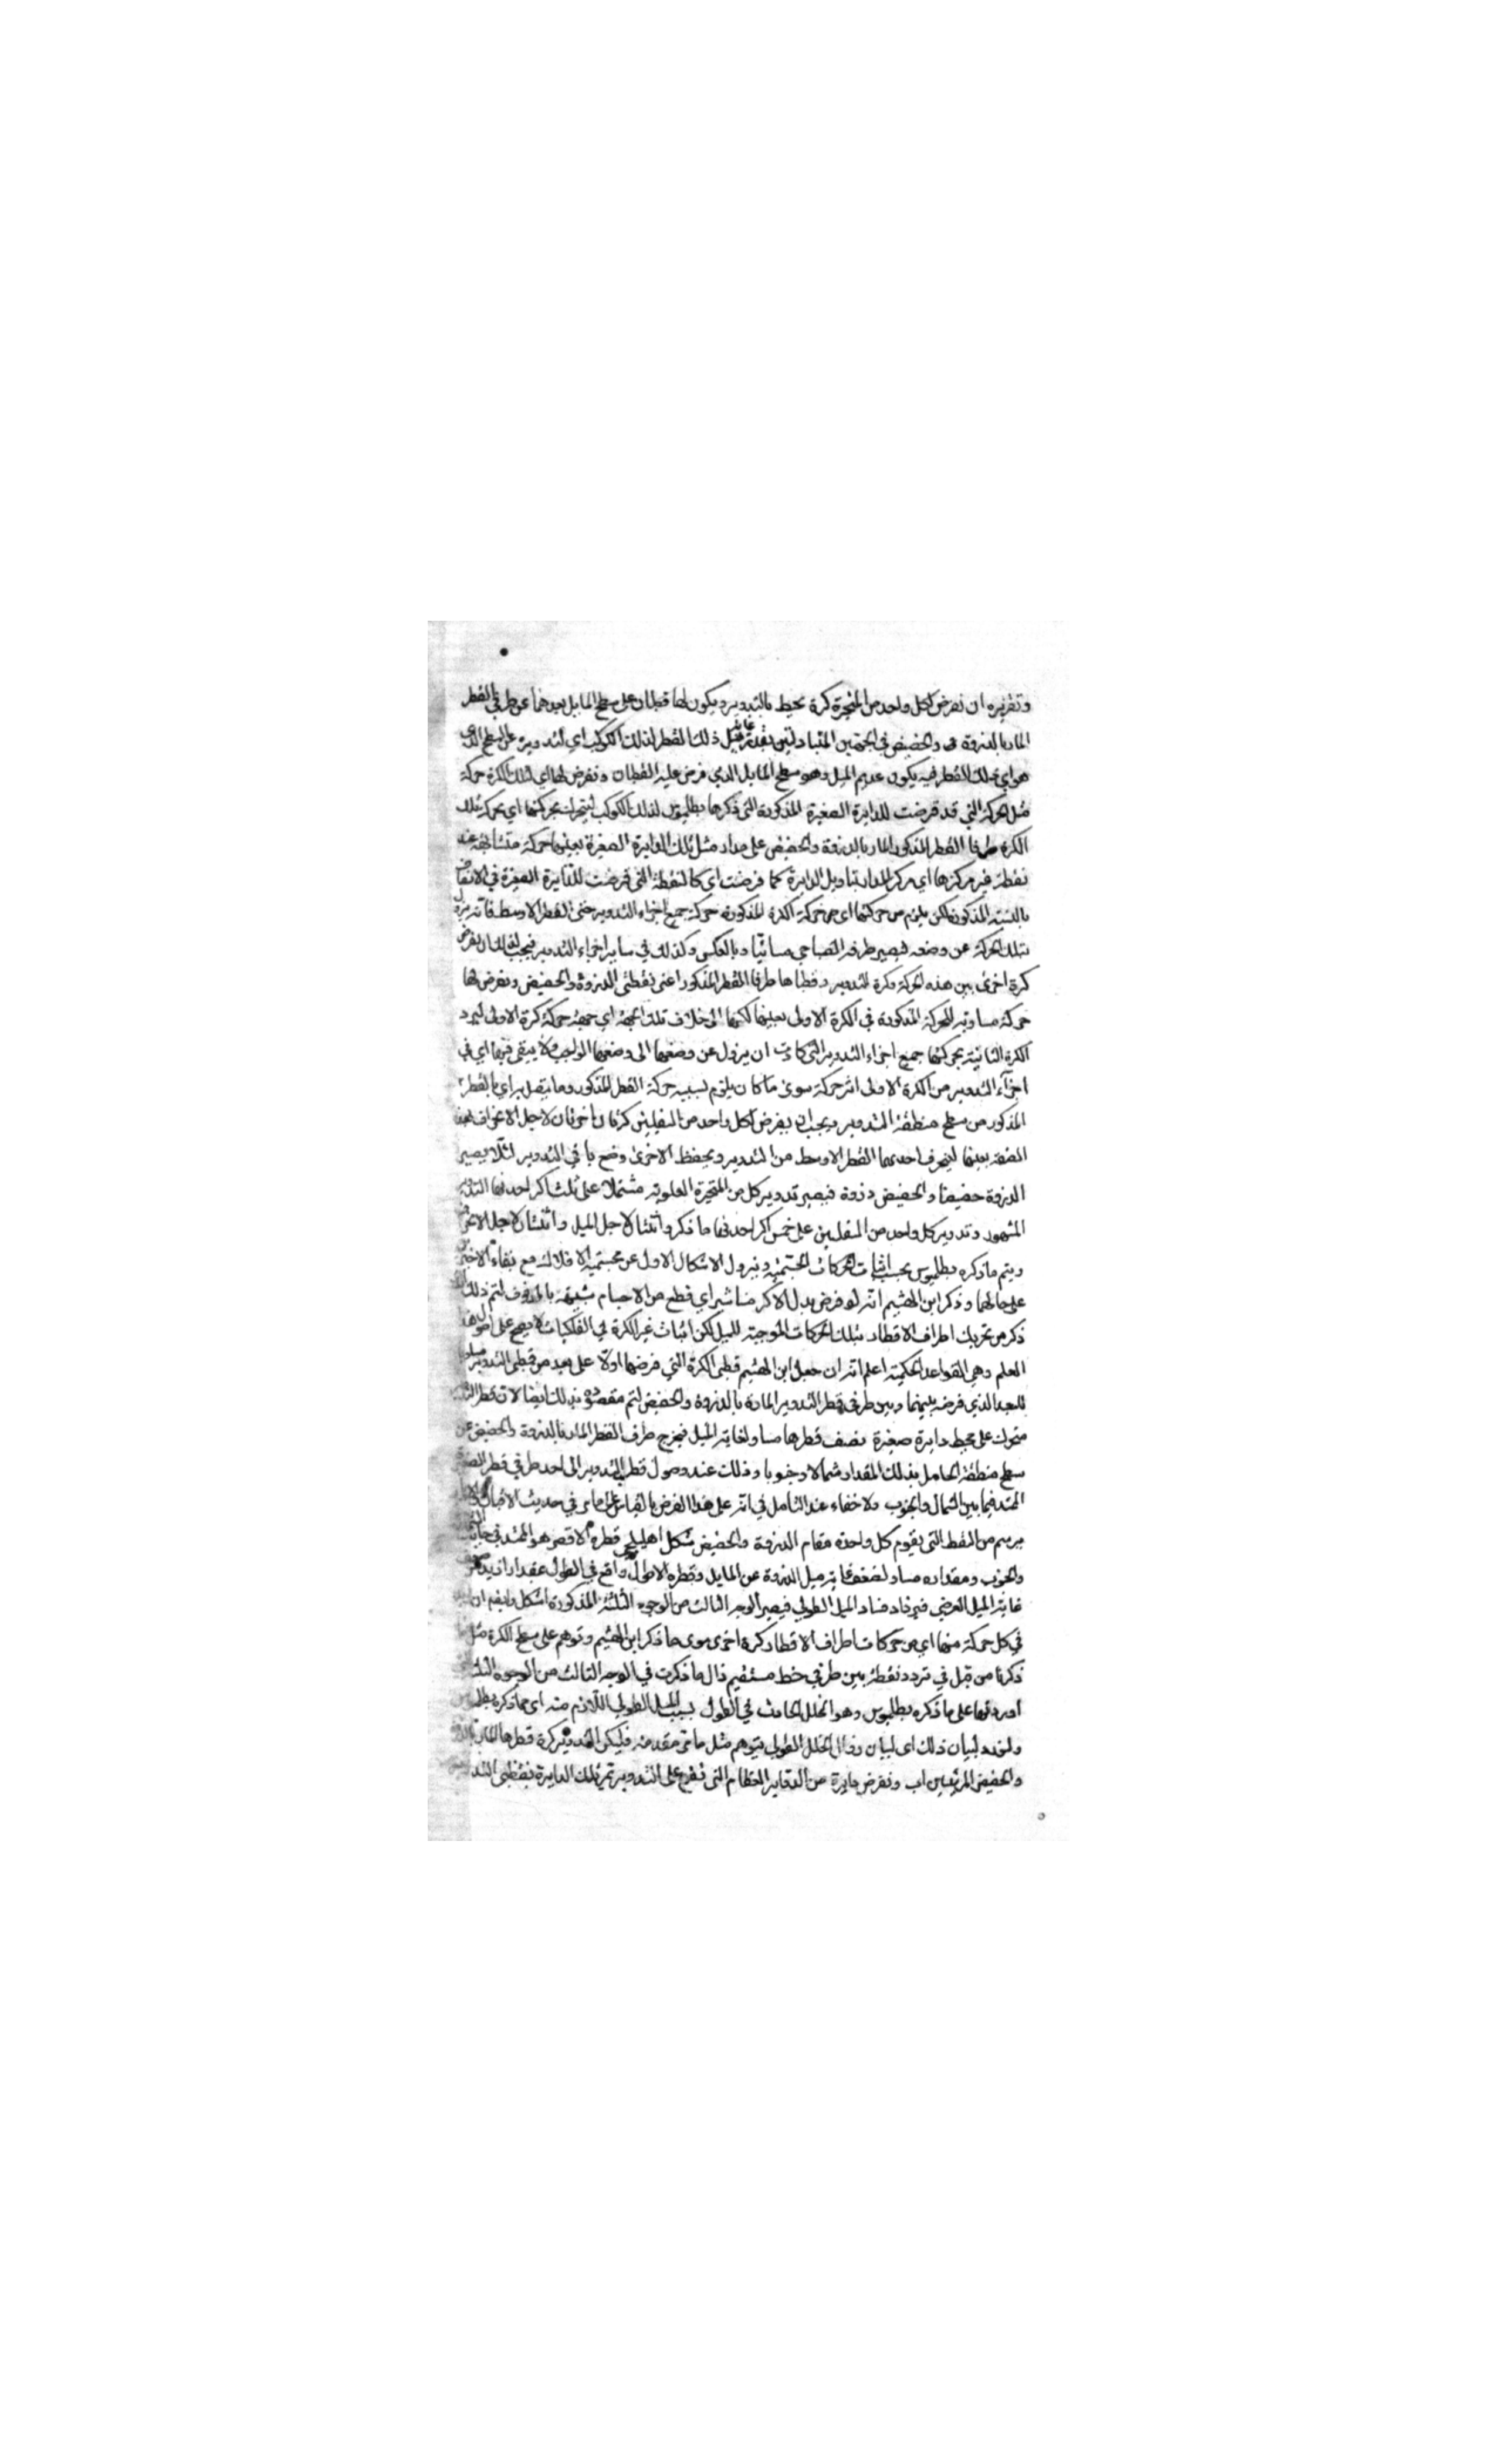 وتقريره ان نفرض لكل واحد من المتحيرة كرة تحيط بالتدوير ويكون لها قطبان على سطح المايل بعدهما عن طرفي القطر
المار بالذروة والحضيض في الجهتين المتبادلتين بقدر غاية ميل ذلك القطر لذلك الكوكب اي لتدويره عن السطح الذي
هو اي ذلك القطر فيه يكون عديم الميل وهو سطح المايل الذي فرض عليه القطبان ونفرض لها اي لتلك الكرة حركة
مثل الحركة التي قد فرضت للدايرة الصغيرة المذكورة التي ذكرها بطلميوس لذلك الكوكب ليتحرك بحركتها اي بحركة تلك
الكرة طرفا القطر المذكور المار بالذروة والحضيض على مدار مثل تلك الدايرة الصغيرة بعينها حركة متشابهة عند
نقطة غير مركزها اي مركز المدار بتاويل الدايرة كما فرضت اي كالنقطة التي فرضت للدايرة الصغيرة في الانتصاف
بالنسبة المذكورة لكن يلزم من حركتها اي من حركة الكرة المذكورة حركة جميع اجزاء التدوير حتى القطر الاوسط فانه يزول
بتلك الحركة عن وضعه فيصير طرفه الصباحي مسائيا وبالعكس وكذلك في سائر اجزاء التدوير فيجب لذلك ان نفرض
كرة اخرى بين هذه الكرة وكرة التدوير وقطباها طرفا القطر المذكور اعني نقطتي الذروة والحضيض ونفرض لها
حركة مساوية للحركة المذكورة في الكرة الاولى بعينها لكنها الى خلاف تلك الجهة اي جهة حركة كرة الاولى ليرد
الكرة الثانية بحركتها جميع اجزاء التدوير التي كادت ان يزول عن وضعها الى وضعها الواجب ولا يبقى فيها اي في
اجزاء التدوير من الكرة الاولى اثر حركة سوى ما كان يلزم بسببه حركة القطر المذكور وما يتصل به اي بالقطر
المذكور من سطح منطقة التدوير ويجب ان يفرض لكل واحد من السفليين كرتان اخريان لاجل الانحراف بهذه
الصفة بعينها ليحرف احديهما القطر الاوسط من التدوير ويحفظ الاخرى وضع باقي التدوير لئلا يصير
الذروة حضيضا والحضيض ذروة فيصير تدوير كل من المتحيرة العلوية مشتملا على ثلث اكر احدها التدوير
المشهور وتدوير كل واحد من السفليين على خمس اكر احدها ما ذكر واثنتان لاجل الميل واثنتان لاجل الانحراف
ويتم ما ذكره بطلميوس بحسب اثبات الحركات المجسمية ويزول الاشكال الاول عن مجسمية الافلاك مع بقاء الاخيرين
على حالهما وذكر ابن الهيثم انه لو فرض بدل الاكر مناشير اي قطع من الاجسام شبيهة بالدفوف لتم ذلك
ذكر من تحريك اطراف الاقطار بتلك الحركات الموجبة للميل لكن اثبات غير الكرة في الفلكيات لا يصح على اصول هذا
العلم وهي القواعد الحكمية اعلم انه ان جعل ابن الهيثم قطبي الكرة التي فرضها اولا على بعد من قطبي التدوير مساو
للبعد الذي فرضه بينهما وبين طرفي قطر التدوير المار بالذروة والحضيض لتم مقصوده بذلك ايضا لان قطر
متحرك على محيط دايرة صغيرة نصف قطرها مساو لغاية الميل فيخرج طرف القطر المار بالذروة والحضيض عن
سطح منطقة الحامل بذلك المقدار شمالا وجنوبا وذلك عند وصول قطب التدوير الى احد طرفي قطر الصغيرة
الممتد فيما بين الشمال والجنوب ولا خفاء عند التامل في انه على هذا الفرض بالقياس على ما مر في حديث الاقبال والادبار
يرسم من النقط التي يقوم كل واحدة مقام الذروة والحضيض شكل اهليلجي قطره الاقصر هو الممتد في جانبي
والجنوب ومقداره مساو لضعف غاية ميل الذروة عن المايل وقطره الاطول واقع في الطول بمقدار ازيد من
غاية الميل العرضي فيزداد فساد الميل الطولي فيصير الوجه الثالث من الوجوه الثلثة المذكورة اشكل وان
في كل حركة منها اي من حركات اطراف الاقطار كرة اخرى سوى ما ذكر ابن الهيثم وتوهم على سطح الكرة مثل ما
ذكرنا من قبل في تردد نقطة بين طرفي خط مستقيم زال ما ذكرت في الوجه الثالث من الوجوه الثلثة
اوردتها على ما ذكره بطلميوس وهو الخلل الحادث في الطول بسبب الميل الطولي اللازم منه اي مما ذكره بطلميوس
ولنورد لبيان ذلك اى لبيان زوال الخلل الطولي بتوهم مثل ما مر مقدمة فليكن التدوير كرة قطرها المار بالذروة
والحضيض المرئيين اب ونفرض دايرة من الدواير العظام التي تقع على التدوير تمر تلك الدايرة بنقطتي